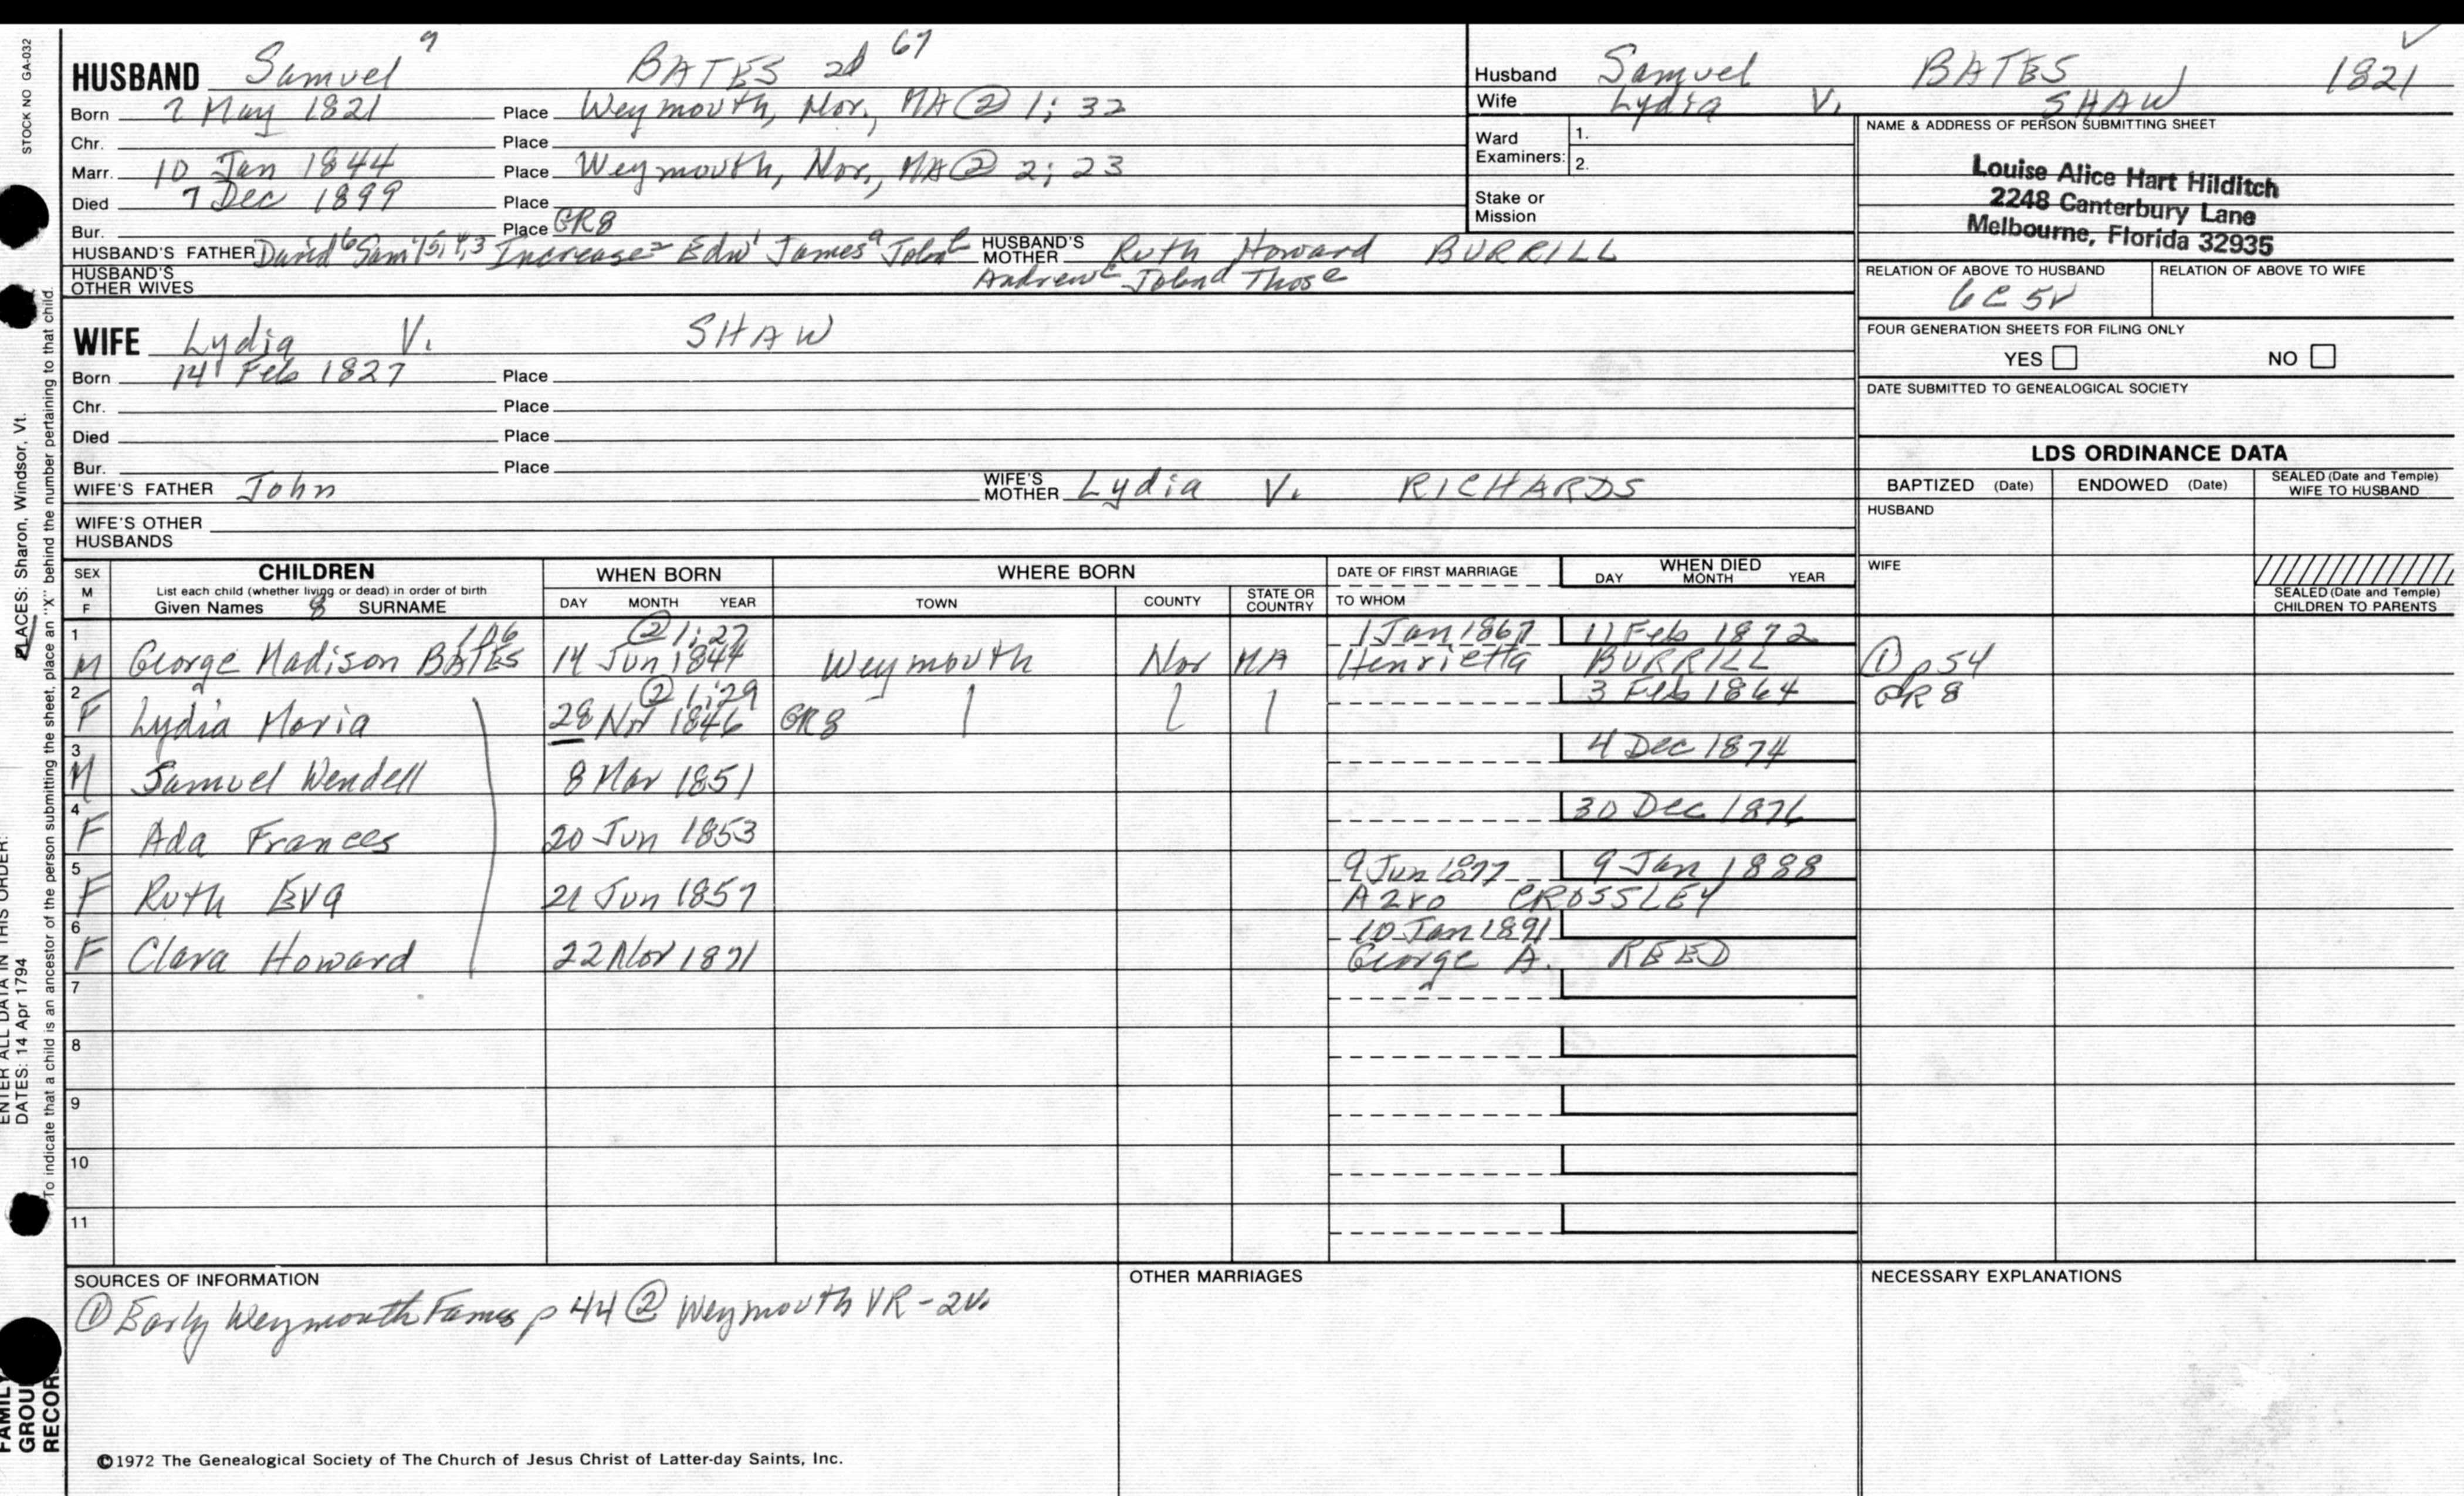 STOCK NO GA-032
HUSBAND Samuel 7 BATES 2d 67
Born 7 May 1821 Place Weymouth, Nor., MA ② 1; 32
Chr. Place
Marr. 10 Jan 1844 Place Weymouth, Nor., MA ② 2; 23
Died 7 Dec 1899 Place
Bur. Place GR8
HUSBAND'S FATHER David 6 Sam'l 5, 4, 3 Increase 2 Edw 1 James a John b HUSBAND'S MOTHER Ruth Howard BURRILL
HUSBAND'S OTHER WIVES Andrew c John d Thos e
Husband Samuel BATES 1821
Wife Lydia V. SHAW
Ward Examiners: 1.
2.
Stake or Mission
NAME & ADDRESS OF PERSON SUBMITTING SHEET
Louise Alice Hart Hilditch
2248 Canterbury Lane
Melbourne, Florida 32935
RELATION OF ABOVE TO HUSBAND RELATION OF ABOVE TO WIFE
6C 5r
FOUR GENERATION SHEETS FOR FILING ONLY
YES NO
DATE SUBMITTED TO GENEALOGICAL SOCIETY
WIFE Lydia V. SHAW
Born 14 Feb 1827 Place
Chr. Place
Died Place
Bur. Place
WIFE'S FATHER John WIFE'S MOTHER Lydia V. RICHARDS
WIFE'S OTHER HUSBANDS
LDS ORDINANCE DATA
BAPTIZED (Date) ENDOWED (Date) SEALED (Date and Temple) WIFE TO HUSBAND
HUSBAND
WIFE
SEALED (Date and Temple) CHILDREN TO PARENTS
SEX M F CHILDREN WHEN BORN WHERE BORN DATE OF FIRST MARRIAGE WHEN DIED
List each child (whether living or dead) in order of birth
Given Names 8 SURNAME DAY MONTH YEAR TOWN COUNTY STATE OR COUNTRY TO WHOM DAY MONTH YEAR
1 106 ② 1; 27 1 Jan 1867 11 Feb 1872
M George Madison BATES 14 Jun 1844 Weymouth Nor MA Henrietta BURRILL ① p54
2 ② 1; 29 3 Feb 1864 GR8
F Lydia Maria 28 Nov 1846 GR8
3 4 Dec 1874
M Samuel Wendell 8 Mar 1851
4 30 Dec 1876
F Ada Frances 20 Jun 1853
5 9 Jun 1877 9 Jan 1888
F Ruth Eva 21 Jun 1857 Azro CROSSLEY
6 10 Jan 1891
F Clara Howard 22 Nov 1871 George A. REED
7
8
9
10
11
SOURCES OF INFORMATION
① Early Weymouth Fams p 44 ② Weymouth VR-2v.
OTHER MARRIAGES
NECESSARY EXPLANATIONS
©1972 The Genealogical Society of The Church of Jesus Christ of Latter-day Saints, Inc.
FAMILY GROUP RECORD
ENTER ALL DATA IN THIS ORDER:
DATES: 14 Apr 1794
PLACES: Sharon, Windsor, Vt.
To indicate that a child is an ancestor of the person submitting the sheet, place an "X" behind the number pertaining to that child.